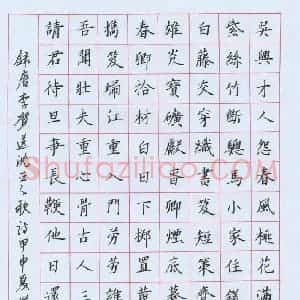 吳興才人怨春風桃花滿
紫絲竹斷驄馬小家住錢
白藤交穿織書笈短策齊
雄光寶礦獻春卿煙底驀
春卿拾材白日下擲置黃
攜笈歸江重入門勞勞誰
吾聞壯夫重心骨古人三
請君待旦事長鞭他日還
錄唐李賀送沈亞之歌詩甲申
Shufaziliao.com